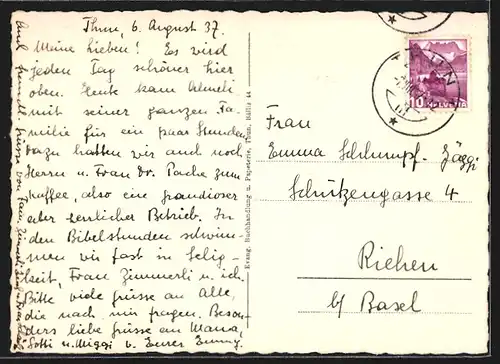 Thun, 6. August 37.
Meine Lieben! Es wird
jeden Tag schöner hier
oben. Heute kam Ameli
mit seiner ganzen Fa-
milie für ein paar Stunden
dazu hatten wir auch noch
Herrn u. Frau Dr. Pache zum
Kaffee, also ein grandioser
aber herrlicher Betrieb. In
den Bibelstunden schwim-
men wir fast in Selig-
keit, Frau Zimmerli u. ich.
Bitte viele Grüsse an Alle,
die nach mir fragen. Beson-
ders liebe Grüsse an Mama,
Lotti u. Miggi v. Eurer Emmy.
Evang. Buchhandlung u. Papeterie, Thun, Bälliz 44
THUN
10 HELVETIA
Frau
Emma Schlumpf-Jäggi
Schützengasse 4
Riehen
b/ Basel